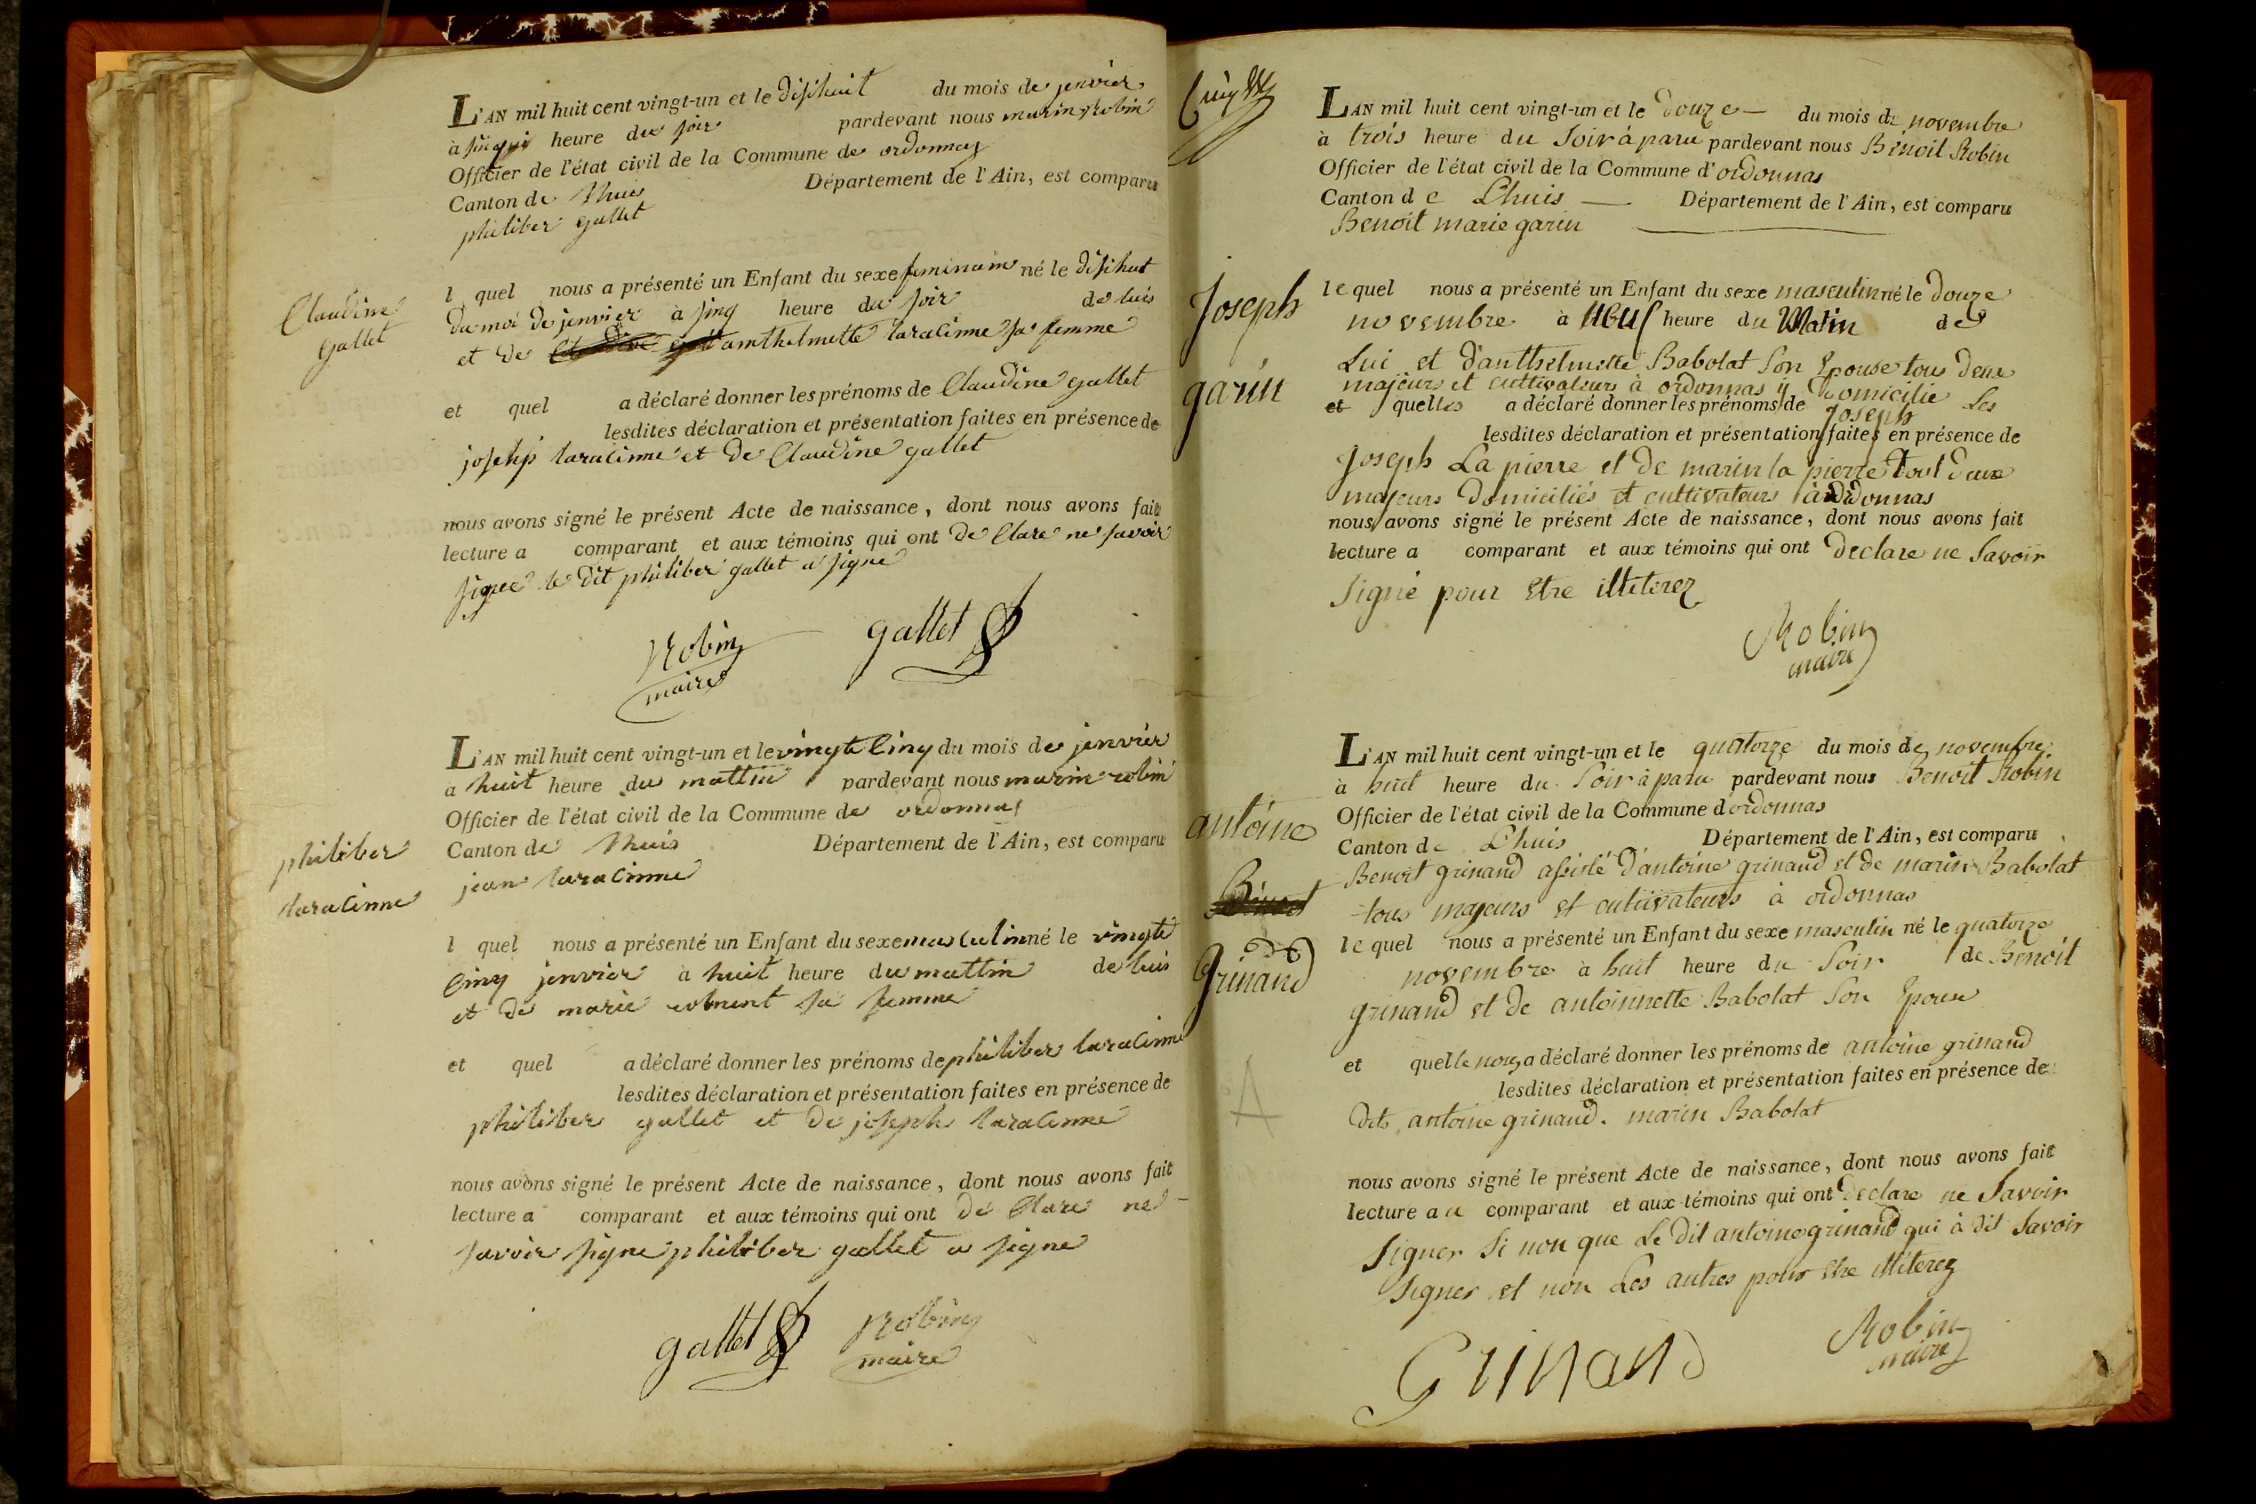 L'AN mil huit cent vingt-un et le disihuit du mois de jenvier
à heure du soir pardevant nous marin Robin
Officier de l'état civil de la Commune de ordonnas
Canton de lhuis Département de l'Ain, est comparu
philiber gallet
Claudine
gallet
l quel nous a présenté un Enfant du sexe feminaim né le disihut
du moi de jenvier à sinq heure du soir de luis
et de anthelmette taracinne sa femme
et quel a déclaré donner les prénoms de Claudine gallet
lesdites déclaration et présentation faites en présence de
josehp taracinne et de Claudine gallet
nous avons signé le présent Acte de naissance, dont nous avons fait
lecture a comparant et aux témoins qui ont de Clare ne savoir
signee le dit philiber gallet a signé
Robin gallet
maire
L'AN mil huit cent vingt-un et le vingte Cinq du mois de jenvier
a huit heure du mattin pardevant nous marin robin
Officier de l'état civil de la Commune de ordonnas
Canton de lhuis Département de l'Ain, est comparu
jean taracinne
philiber
taracinne
l quel nous a présenté un Enfant du sexe masculin né le vingte
Cinq jenvier à huit heure du mattin de luis
et de marie sa femme
et quel a déclaré donner les prénoms de philiber taracinne
lesdites déclaration et présentation faites en présence de
philiber gallet et de joseph taracinne
nous avons signé le présent Acte de naissance, dont nous avons fait
lecture a comparant et aux témoins qui ont de Clare ne
savoir signe philiber gallet a signe
gallet Robin
maire
L'AN mil huit cent vingt-un et le douze du mois de novembre
à trois heure du Soir à paru pardevant nous Benoit Robin
Officier de l'état civil de la Commune d'ordonnas
Canton de Lhuis Département de l'Ain, est comparu
Benoit marie garin
Joseph
garin
le quel nous a présenté un Enfant du sexe masculin né le douze
novembre à neuf heure du Matin de
Lui et d'anthelmette Babolat Son Epouse tous deux
majeurs et cultivateurs à ordonnas y Domicilie
et quelles a déclaré donner les prénoms de Joseph Les
lesdites déclaration et présentation faites en présence de
Joseph La pierre et de marin la pierre tout deux
majeurs Domiciliés et cultivateurs à ordonnas
nous avons signé le présent Acte de naissance, dont nous avons fait
lecture a comparant et aux témoins qui ont declare ne Savoir
Signé pour Etre illiterez
Robin
maire
L'AN mil huit cent vingt-un et le quatorze du mois de novembre
à huit heure du Soir à paru pardevant nous Benoit Robin
Officier de l'état civil de la Commune d'ordonnas
Canton de Lhuis Département de l'Ain, est comparu
Benoit grinand assisté d'antoine grinand et de marin Babolat
tous majeurs et cultivateurs à ordonnas
antoine
Benoit
Grinand
le quel nous a présenté un Enfant du sexe masculin né le quatorze
novembre à huit heure du Soir de Benoit
grinand et de antoinnette Babolat Son Epouse
et quelle nous a déclaré donner les prénoms de antoine grinand
lesdites déclaration et présentation faites en présence de
dits antoine grinand. marin Babolat
A
nous avons signé le présent Acte de naissance, dont nous avons fait
lecture a a comparant et aux témoins qui ont declare ne Savoir
Signer Si non que Le dit antoine grinand qui à dit Savoir
Signer et non Les autres pour etre illiterez
Grinand Robin
maire